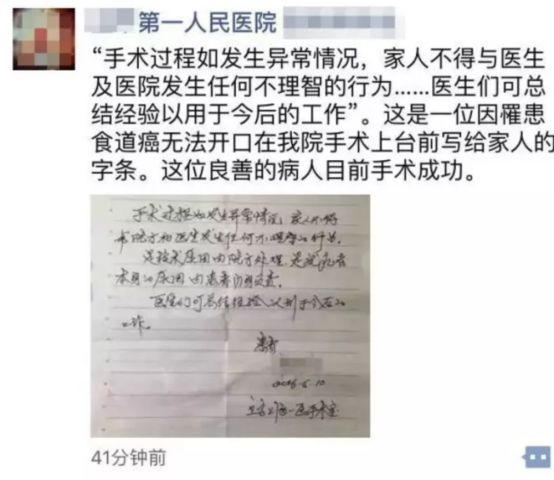 第一人民医院
“手术过程如发生异常情况，家人不得与医生
及医院发生任何不理智的行为……医生们可总
结经验以用于今后的工作”。这是一位因罹患
食道癌无法开口在我院手术上台前写给家人的
字条。这位良善的病人目前手术成功。
手术过程如发生异常情况，家人不得
与院方和医生发生任何不理智的行为。
是技术原因由院方处理，是
本身的原因由患者负责。
医生们可总结经验以利于今后的
工作。
患者
2016-6-10
手术室
41分钟前